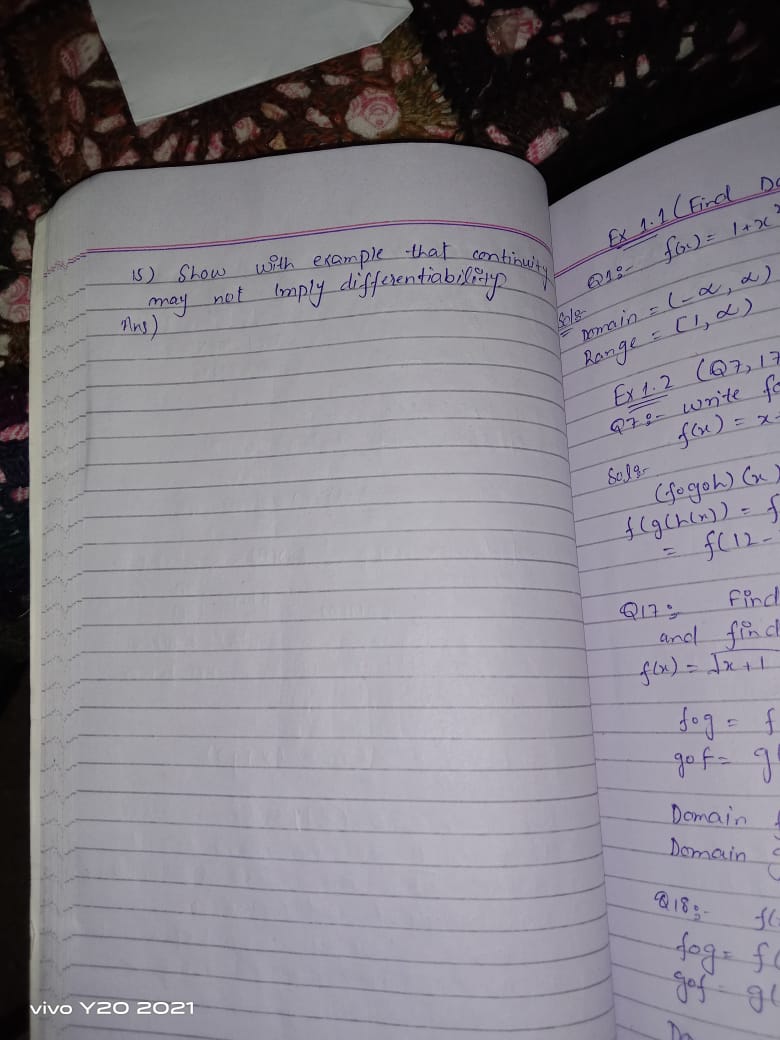 15) Show with example that continuity
may not imply differentiability
Ans)
Ex 1.1 (Find Do
Q1:- f(x) = 1+x²
Sol:-
Domain = (-∝, ∝)
Range = [1, ∝)
Ex 1.2 (Q7, 17
Q7:- write fo
f(x) = x
Sol:-
(fogoh)(x)
f(g(h(x)) = f
= f(12-
Q17: Find
and find
f(x) = √x+1
fog = f
gof = g(
Domain f
Domain g
Q18:- f(
fog = f(
gof = g(
Do
vivo Y20 2021